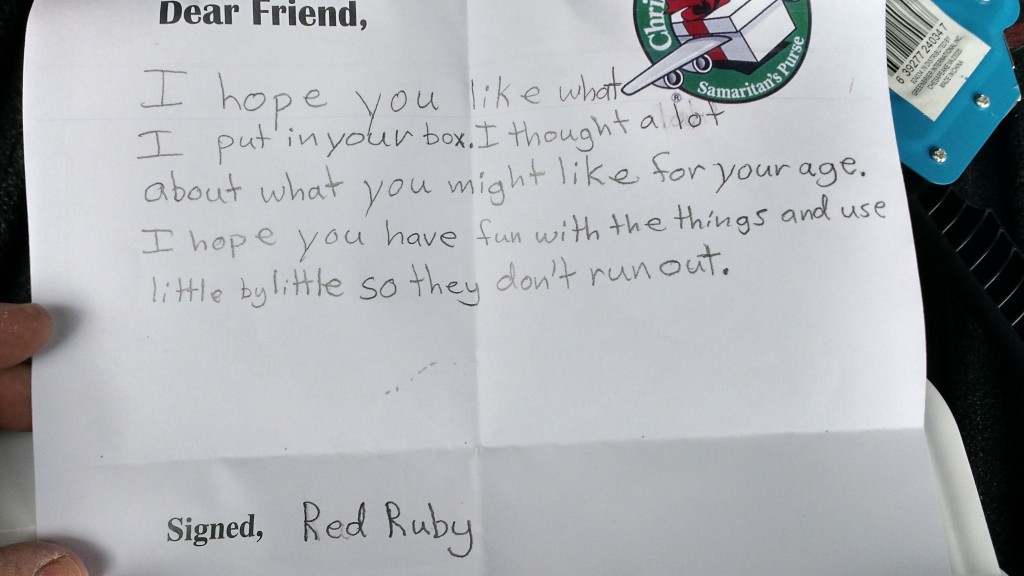 Dear Friend,
Chri
Samaritan's Purse
®
6 39277 24034 7
I hope you like what
I put in your box. I thought a lot
about what you might like for your age.
I hope you have fun with the things and use
little by little so they don't run out.
Signed, Red Ruby